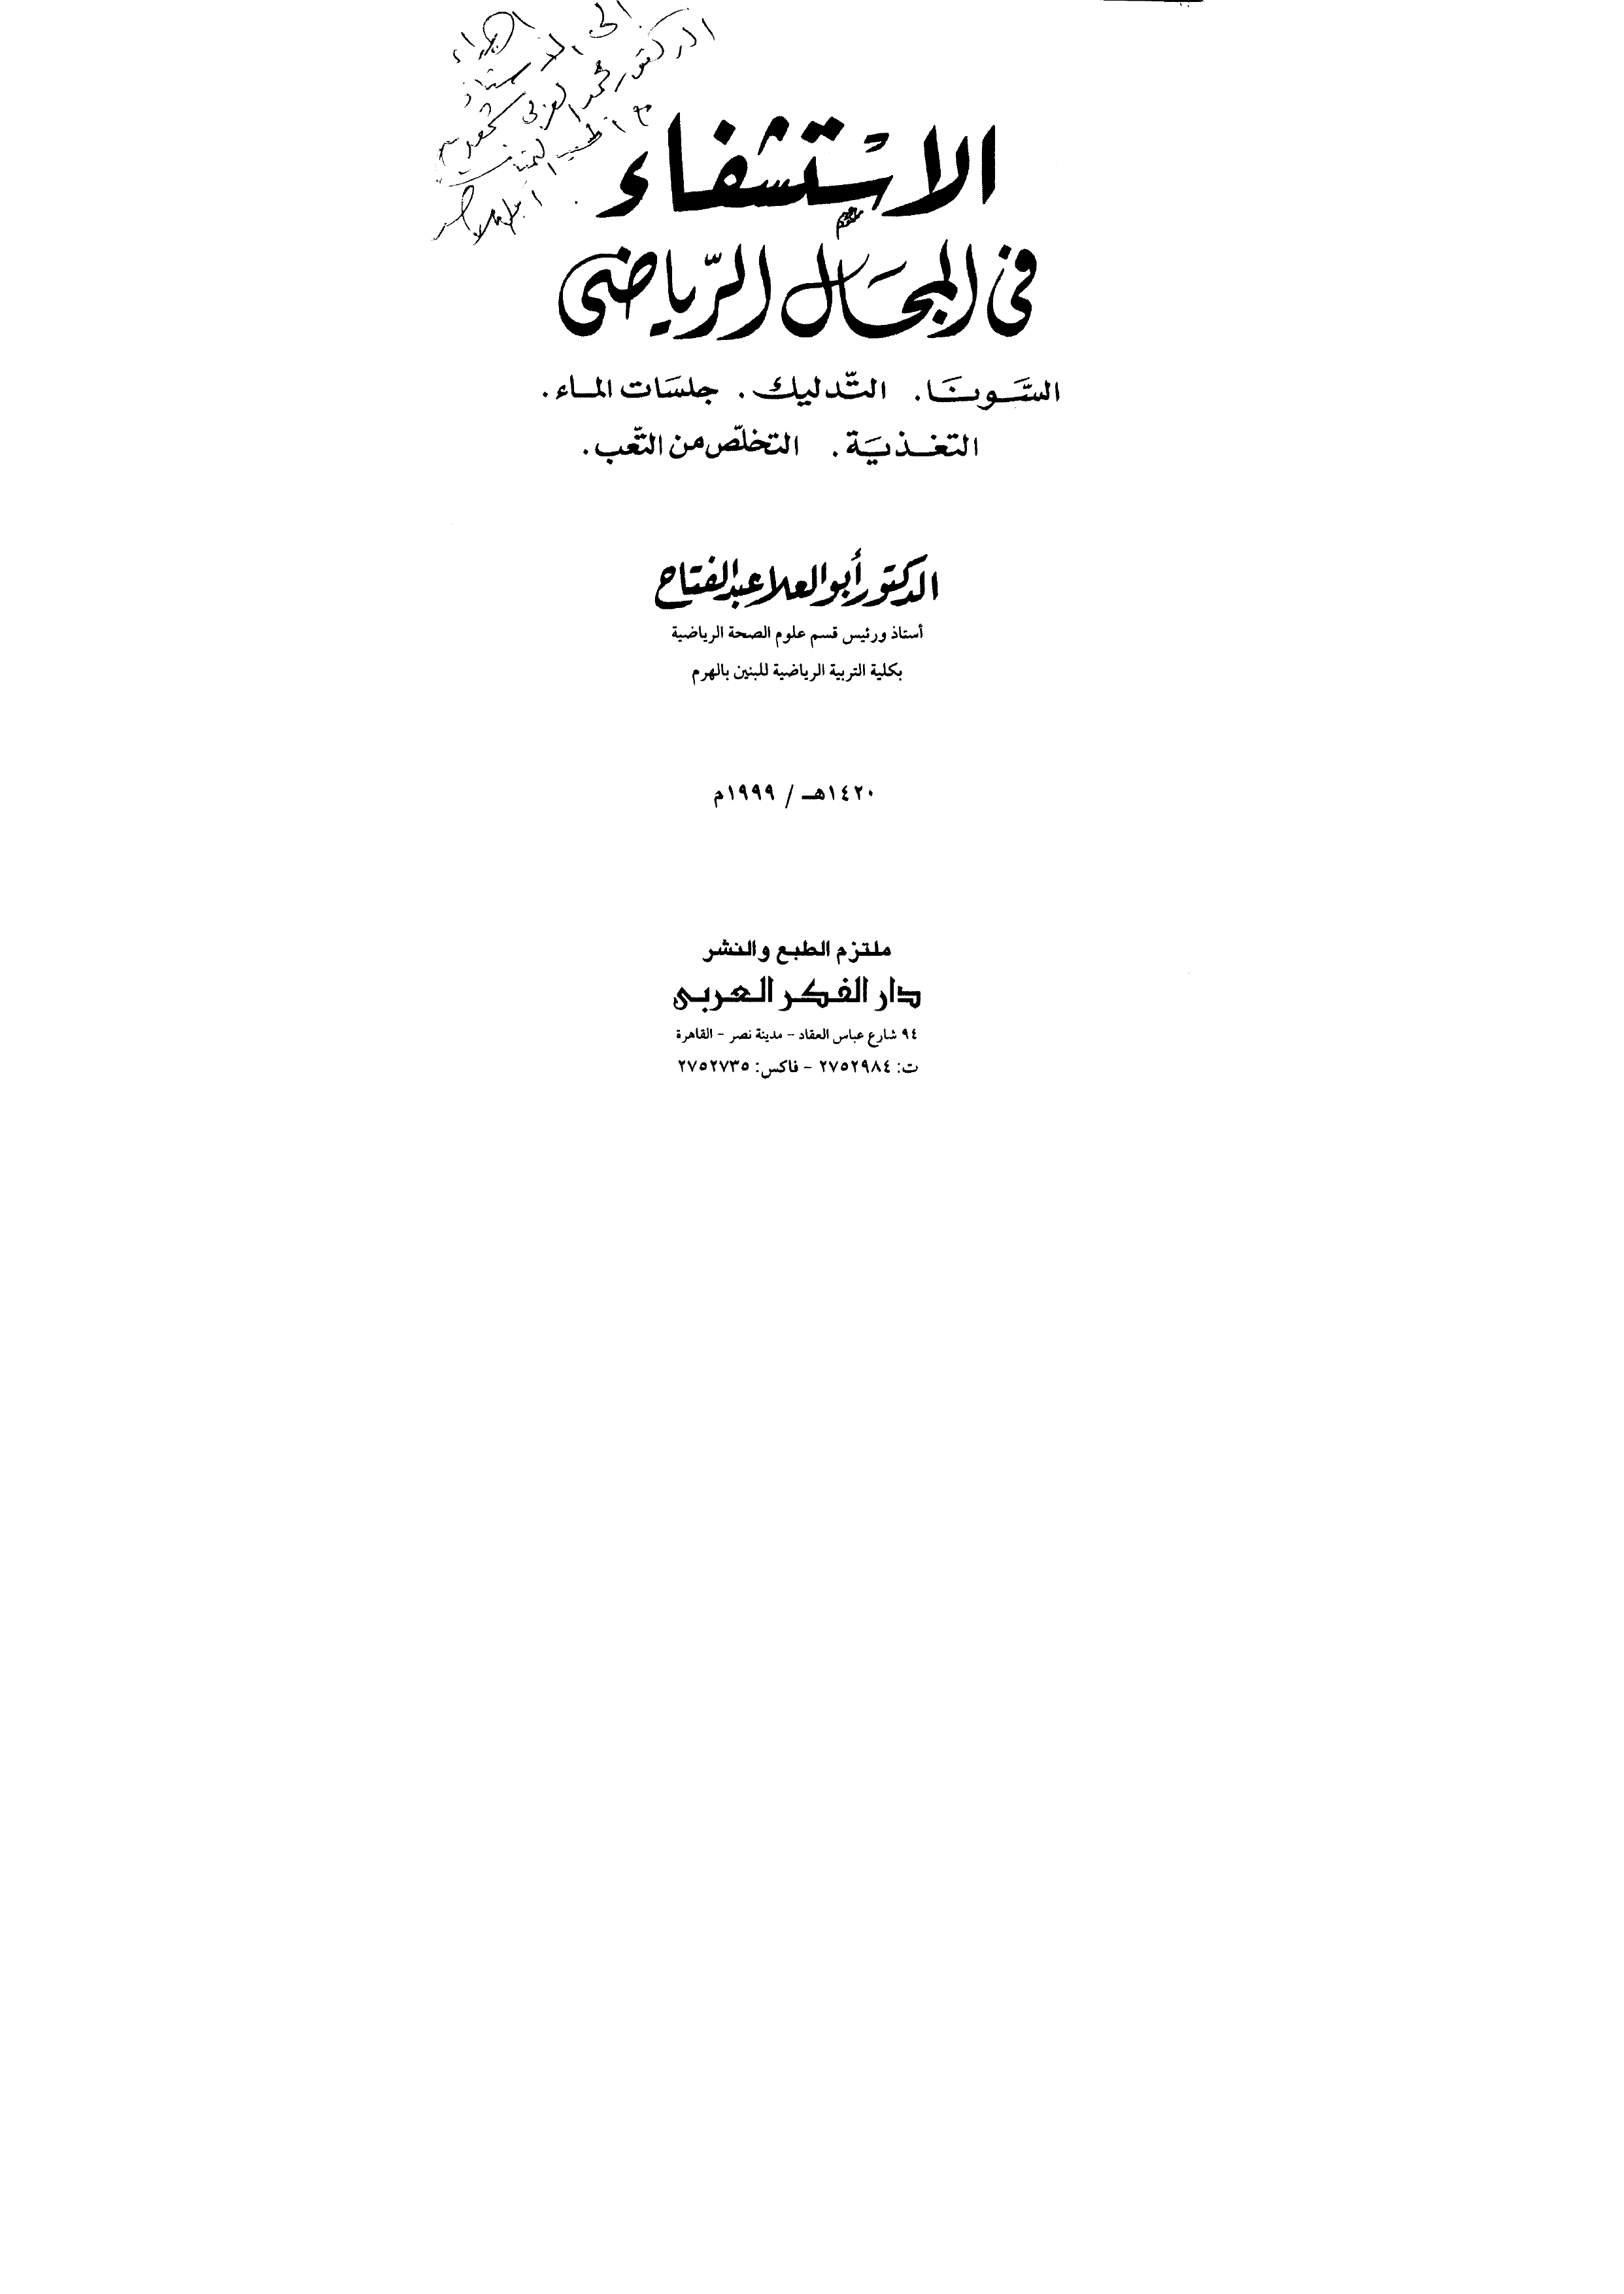 اهداء
إلى الأستاذ
الدكتور محمد العزبى
مع أطيب
الاستشفاء
فى المجال الرياضى
السونا. التدليك. جلسات الماء.
التغذية. التخلص من التعب.
الدكتور أبو العلا عبد الفتاح
أستاذ ورئيس قسم علوم الصحة الرياضية
بكلية التربية الرياضية للبنين بالهرم
١٤٢٠هـ / ١٩٩٩م
ملتزم الطبع والنشر
دار الفكر العربى
٩٤ شارع عباس العقاد - مدينة نصر - القاهرة
ت: ٢٧٥٢٩٨٤ - فاكس: ٢٧٥٢٧٣٥